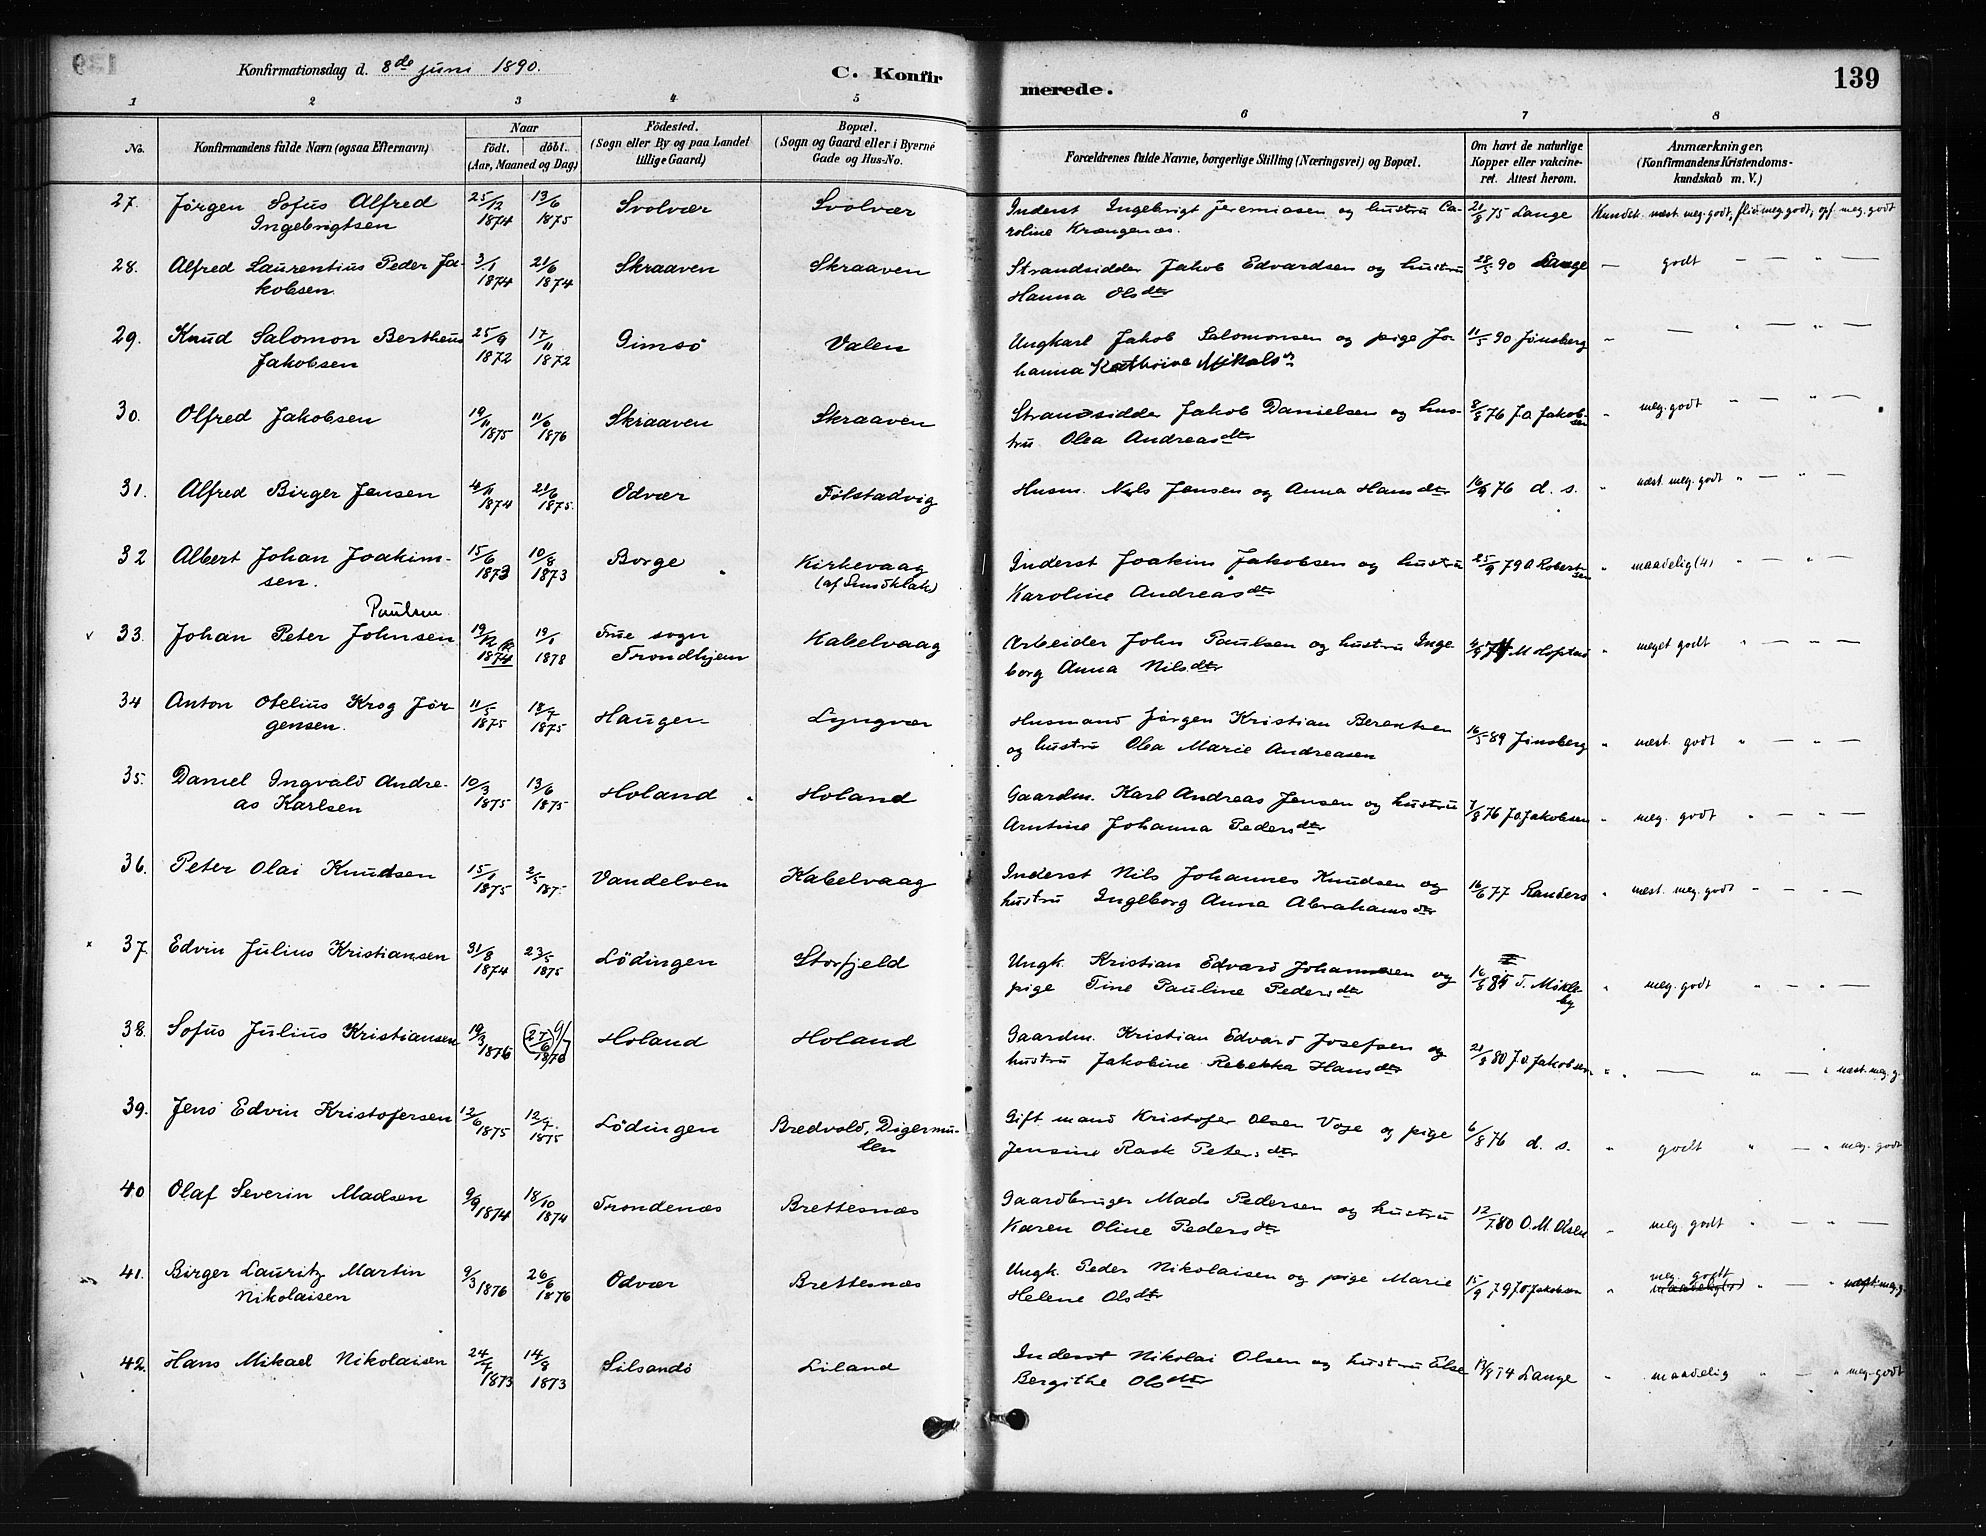 Konfirmationsdag d. 8de juni 1890.
C. Konfirmerede.
139
1 2 3 4 5 6 7 8
No.
Konfirmandens fulde Navn (ogsaa Efternavn)
Naar
födt. döbt.
(Aar, Maaned og Dag)
Födested.
(Sogn eller By og paa Landet
tillige Gaard)
Bopæl.
(Sogn og Gaard eller i Byerne
Gade og Hus-No.
Forældrenes fulde Navne, borgerlige Stilling (Næringsvei) og Bopæl.
Om havt de naturlige
Kopper eller vakcine-
ret. Attest herom.
Anmærkninger,
(Konfirmandens Kristendoms-
kundskab m. V.)
27. Jørgen Sofus Alfred 25/12 1874 13/6 1875 Svolvær Svolvær Inderst Ingebrigt Jeremiasen og hustru Ca- 21/8 75 Lange Kundsk. næst meg. godt, flid meg. godt, opf. meg. godt
Ingebrigtsen roline Krængenæs.
28. Alfred Laurentius Peder Ja- 3/1 1874 21/6 1874 Skraaven Skraaven Strandsidder Jakob Edvardsen og hustru 28/5 90 Lange — godt — — " —
kobsen. Hanna Olsdtr
29. Knud Salomon Bertheus 25/9 1872 17/11 1872 Gimsö Valen Ungkarl Jakob Salomonsen og pige Jo- 11/5 90 Jinsberg " — " — " —
Jakobsen hanna Kathrine Mikals
30. Olfred Jakobsen 19/11 1875 11/6 1876 Skraaven Skraaven Strandsidder Jakob Danielsen og hus- 8/8 76 J.O. Jakobsen " meg. godt " — " —
tru Olea Andreasdtr
31. Alfred Birger Jensen 4/11 1874 21/6 1875. Odvær Fölstadvig Husm. Nils Jensen og Anna Hansdtr 16/9 76 d. s. " næst. meg. godt " — " —
32 Albert Johan Joakim- 15/6 1873 10/8 1873 Borge Kirkevaag Inderst Joakim Jakobsen og hustru 25/9 79 O Robertsen " maadelig (4) " — " —
sen. Karoline Andreasdtr
Paulsen
v 33. Johan Peter Johnsen 19/12 1874 19/1 1878 Frue sogn Kabelvaag Arbeider John Paulsen og hustru Inge- M Hopstad " meget godt " — " —
Trondhjem borg Anna Nilsdtr
34 Anton Otelius Krog Jør- 11/5 1875 18/7 1875 Haugen Lyngvær Husmand Jørgen Kristian Berentsen 16/5 89 Jinsberg " næst. godt " — " —
gensen. og hustru Olea Marie Andreasen
35. Daniel Ingvald Andre- 10/3 1875 13/6 1875 Holand Holand Gaardm. Karl Andreas Jensen og hustru 7/8 76 J.O. Jakobsen " meg. godt " — " —
as Karlsen Arntine Johanna Pedersdtr
36. Peter Olai Knudsen 15/1 1875 2/5 187 Vandelven Kabelvaag Inderst Nils Johannes Knudsen og 16/6 77 Randers " næst. meg. godt " — " —
hustru Ingeborg Anna Abrahamsdtr
x 37. Edvin Julius Kristiansen 31/8 1874 23/5 1875 Lödingen Storfjeld Ungk. Kristian Edvard Johannesen og 16/8 85 T. Mikleby " meg. godt " — " —
pige Tine Pauline Pedersdtr
38. Sofus Julius Kristiansen 19/3 1876 (27/6 1876) 9/7 Holand Holand Gaardm. Kristian Edvard Josefsen og 21/9 80 J.O. Jakobsen " — " — " næst. meg. g.
hustru Jakobine Rebekka Hansdtr
39. Jens Edvin Kristofersen 12/6 1875 12/7 1875 Lödingen Bredvold, Digermu- Gift mand Kristofer Olsen Voje og pige 6/8 76 d. s. " godt " — " meg. godt
len Jensine Rask Petersdtr
40 Olaf Severin Madsen 9/9 1874 18/10 1874 Trondenæs Brettesnæs Gaardbruger Mads Pedersen og hustru 12/7 80 O.M. Olsen " meg. godt " — " —
Karen Oline Pedersdtr
41. Birger Lauritz Martin 9/3 1876 26/6 1876 Odvær Brettesnæs Ungk. Peder Nikolaisen og pige Marie 15/9 79 J O Jakobsen " meg. godt " — " næst. meg. g.
Nikolaisen Helene Olsdtr
42. Hans Mikael Nikolaisen 24/7 1873 14/8 1873 Silsandö Liland Inderst Nikolai Olsen og hustru Else 74 Lange " maadelig " — " meg. godt
Bergithe Olsdtr